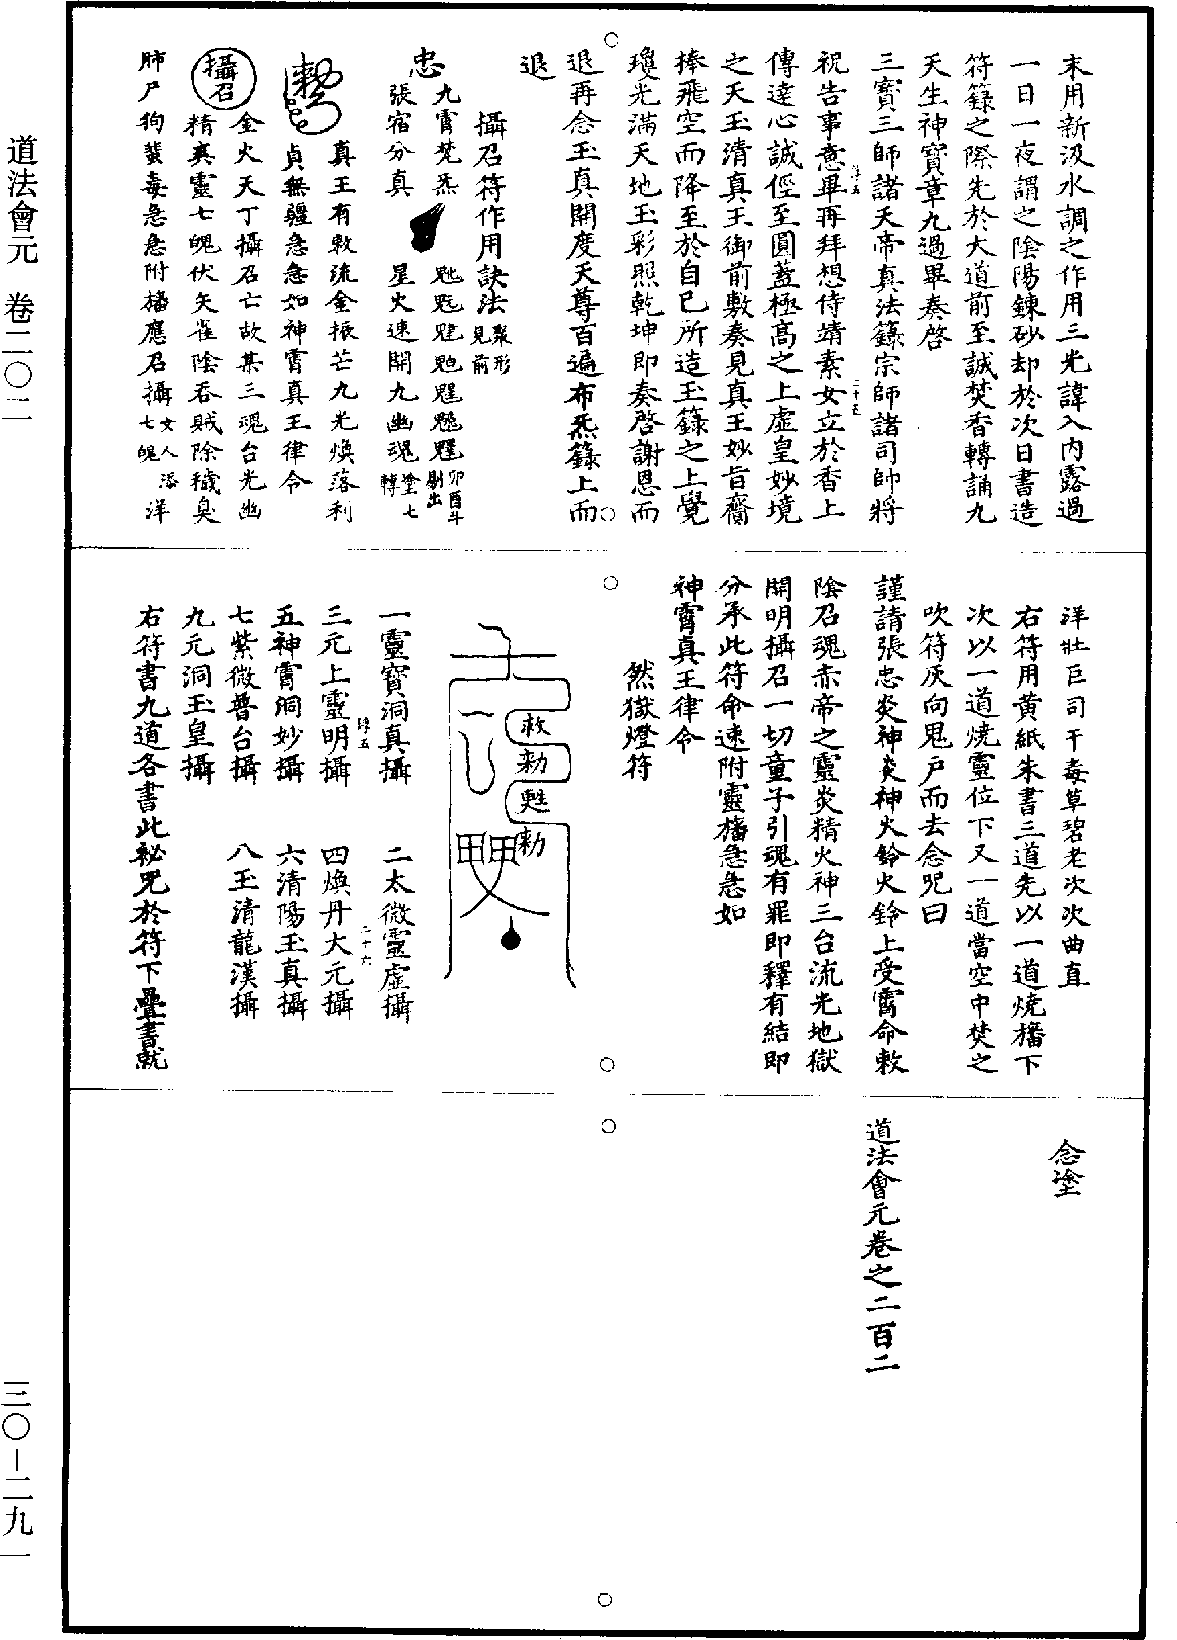 道法會元　卷二〇二
三〇－二九一
末用新汲水調之作用三光諱入內露過
一日一夜謂之陰陽鍊砂却於次日書造
符籙之際先於大道前至誠焚香轉誦九
天生神寶章九過畢奏啓
三寶三師諸天帝真法籙宗師諸司帥將
祝告事意畢再拜想侍靖素女立於香上
傳達心誠徑至圓蓋極高之上虛皇妙境
之天玉清真王御前敷奏見真王妙旨齎
捧飛空而降至於自已所造玉籙之上覺
瓊光滿天地玉彩照乾坤即奏啓謝恩而
退再念玉真開度天尊百遍布炁籙上而
退
攝召符作用訣法聚形見前
忠
九霄梵炁
張宿分真
卯酉斗剔出
星火速開九幽魂塗七轉
真王有敕流金振芒九光煥落利
貞無疆急急如神霄真王律令
攝召
金火天丁攝召亡故某三魂台光幽
精爽靈七魄伏矢雀陰吞賊除穢臭
肺尸狗蜚毒急急附旛應召攝女人添七魄洋
洋壯巨司干毒草碧老次次曲直
右符用黃紙朱書三道先以一道燒旛下
次以一道燒靈位下又一道當空中焚之
吹符灰向鬼戶而去念呪曰
謹請張忠炎神炎神火鈴火鈴上受霄命敕
陰召魂赤帝之靈炎精火神三台流光地獄
開明攝召一切童子引魂有罪即釋有結即
分承此符命速附靈旛急急如
神霄真王律令
然獄燈符
敕勑甦勑
一靈寶洞真攝　二太微靈虛攝
三元上靈明攝　四煥丹大元攝
五神霄洞妙攝　六清陽玉真攝
七紫微普台攝　八玉清龍漢攝
九元洞玉皇攝
右符書九道各書此祕咒於符下疊書就
念塗
道法會元卷之二百二